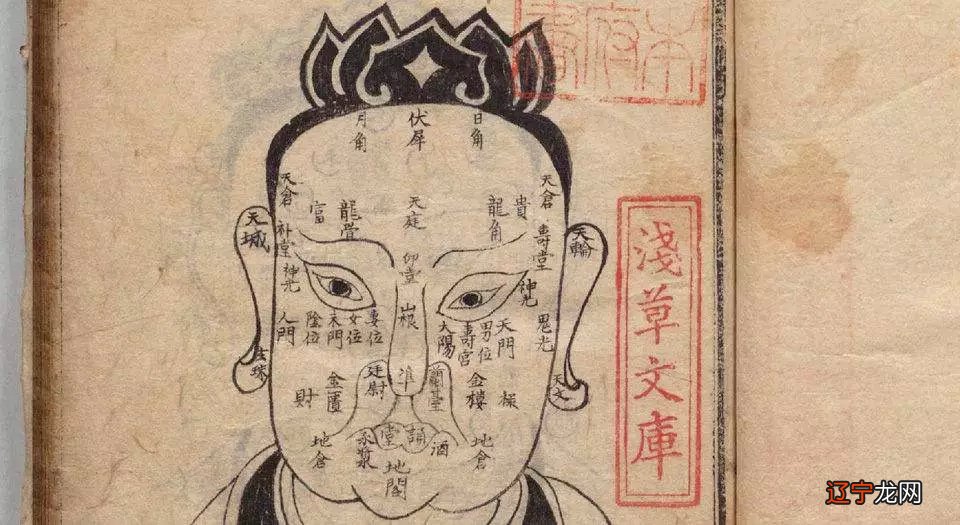 月角
伏犀
日角
天倉
天倉
富
龍骨
天庭
龍角
貴
天城
天輪
壽堂
印堂
神光
神光
山根
人門
陰位
末門
女位
妻位
太陽
壽宮
男位
天門
鬼光
財
金匱
廷尉
準
蘭臺
金樓
地倉
承漿
堂
酒
地倉
地閣
淺草文庫
辽宁龙网